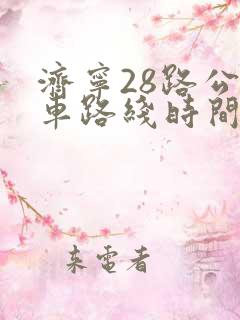 濟寧28路公
車路綫時間
来電者